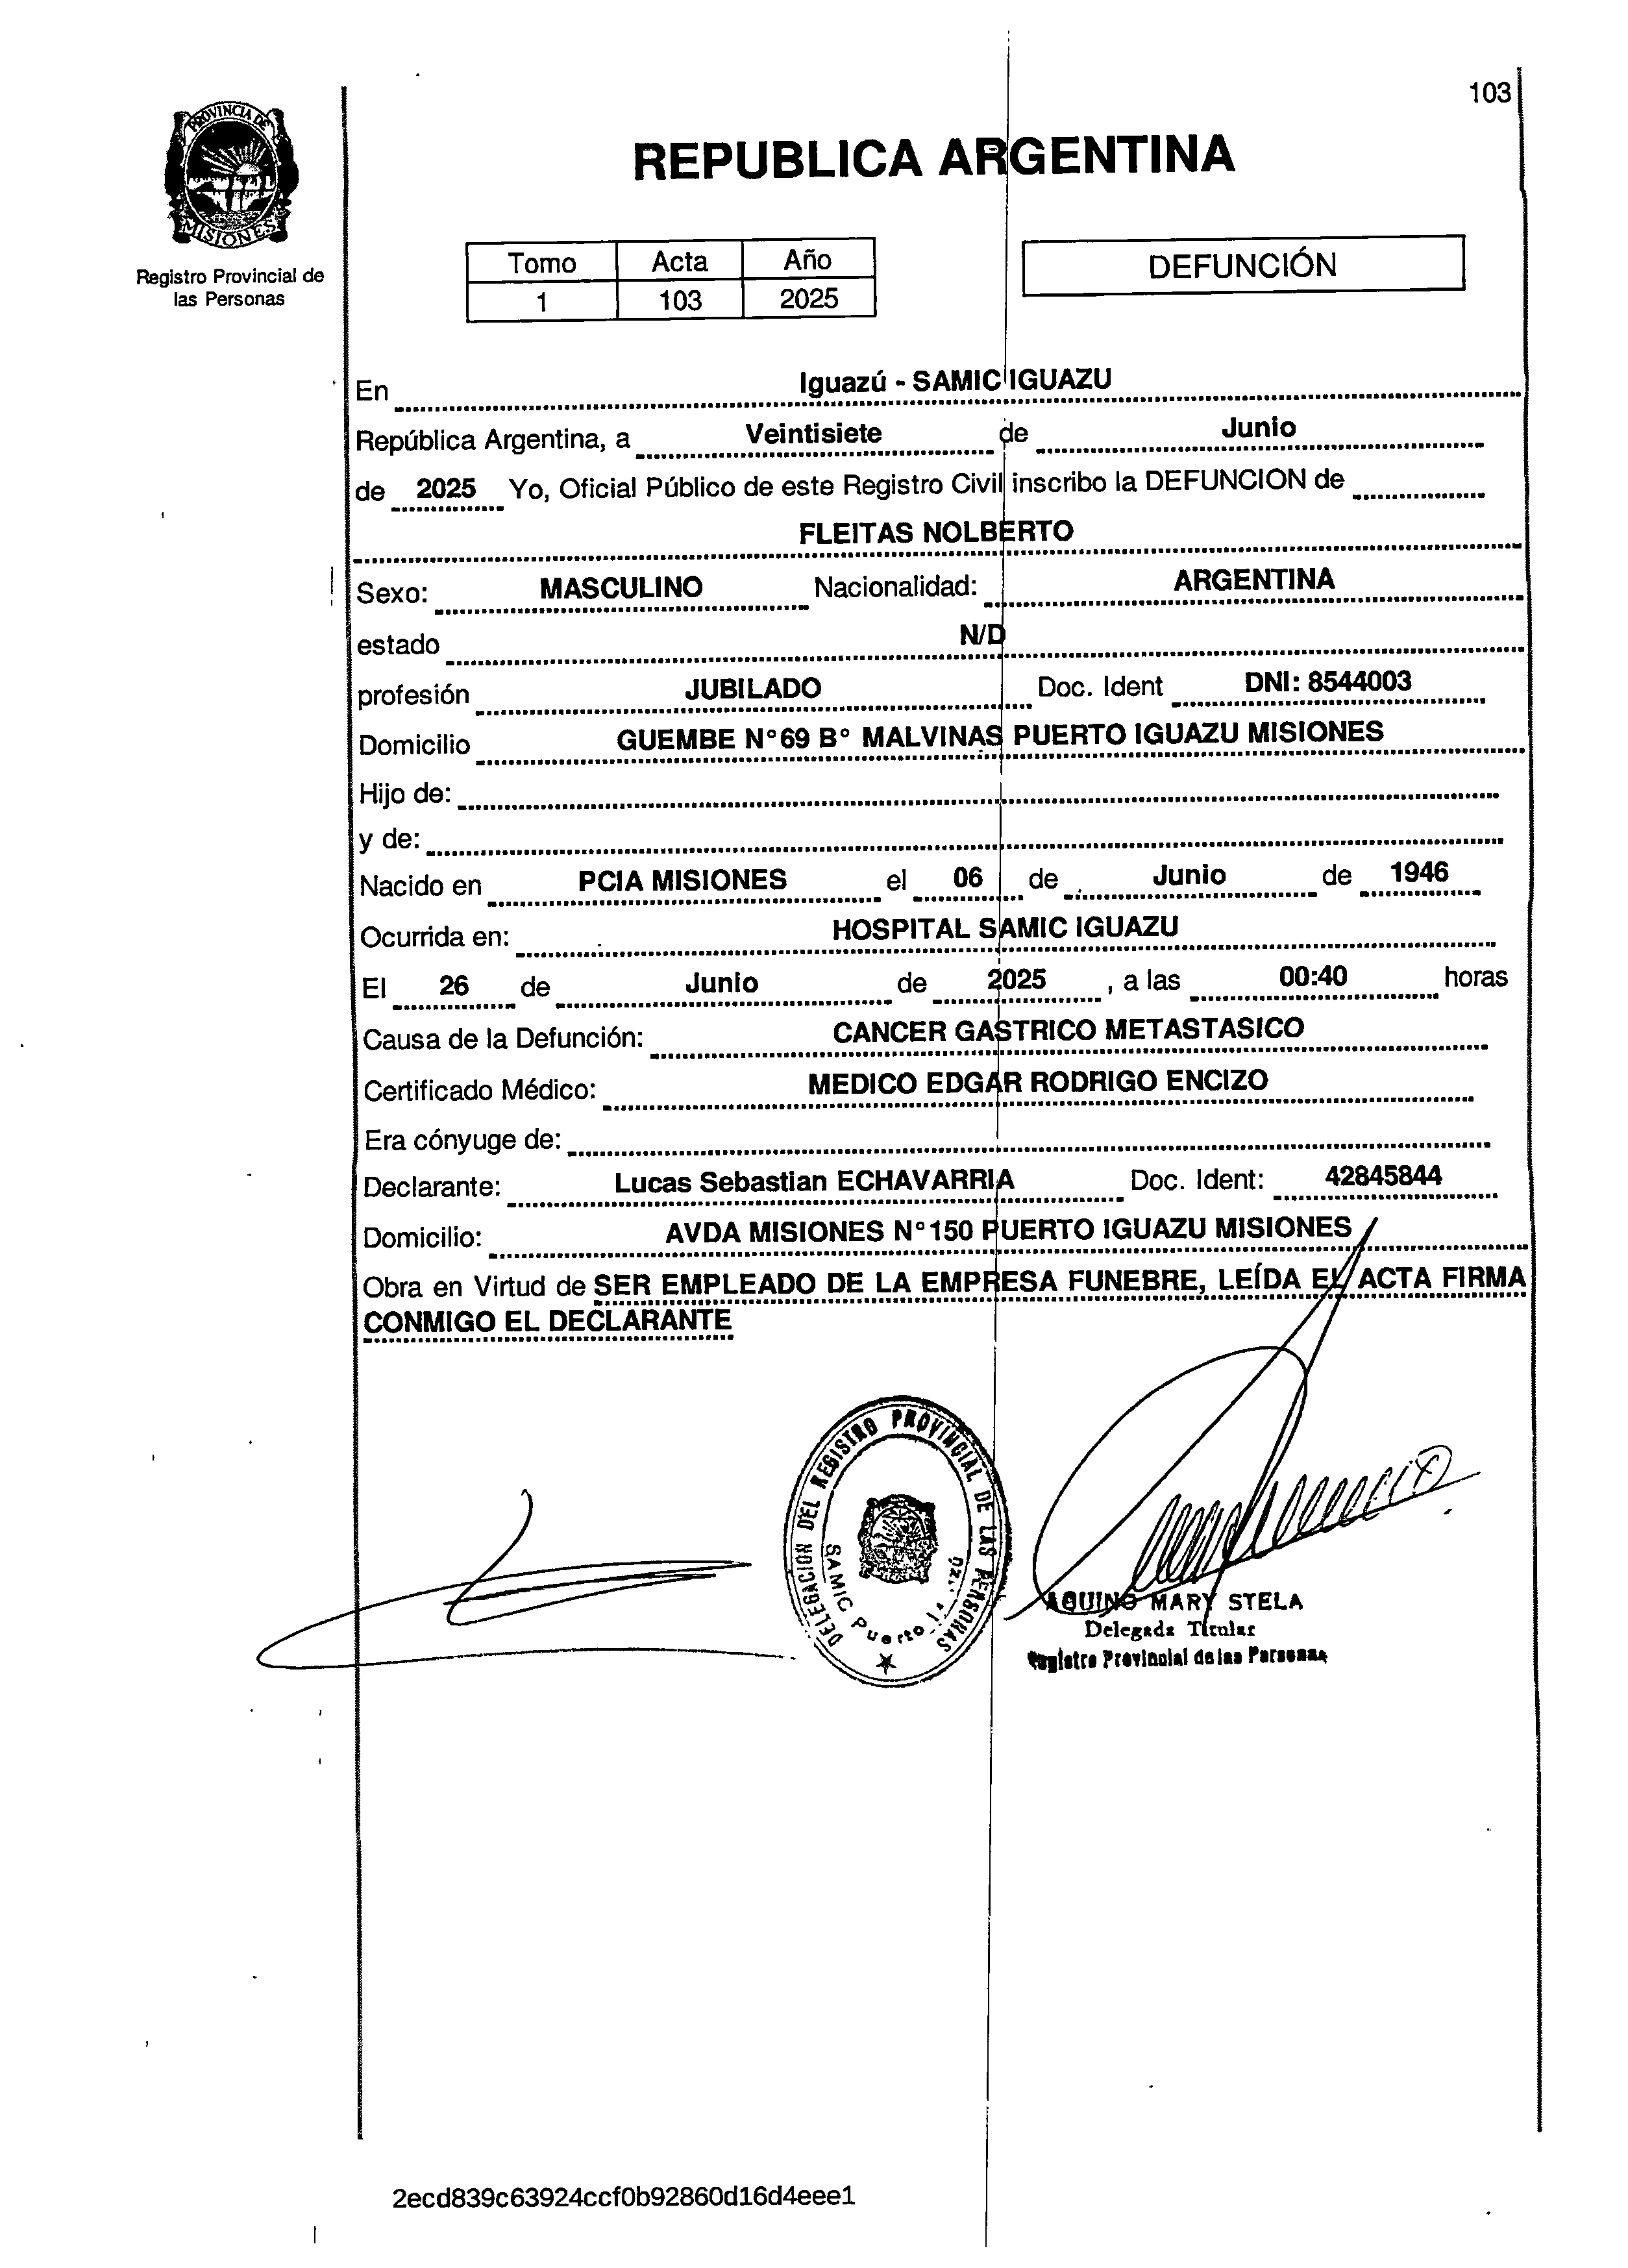 103
PROVINCIA DE
MISIONES
Registro Provincial de
las Personas
REPUBLICA ARGENTINA
Tomo Acta Año
1 103 2025
DEFUNCIÓN
En Iguazú - SAMIC IGUAZU
República Argentina, a Veintisiete de Junio
de 2025 Yo, Oficial Público de este Registro Civil inscribo la DEFUNCION de
FLEITAS NOLBERTO
Sexo: MASCULINO Nacionalidad: ARGENTINA
estado N/D
profesión JUBILADO Doc. Ident DNI: 8544003
Domicilio GUEMBE N°69 B° MALVINAS PUERTO IGUAZU MISIONES
Hijo de:
y de:
Nacido en PCIA MISIONES el 06 de Junio de 1946
Ocurrida en: HOSPITAL SAMIC IGUAZU
El 26 de Junio de 2025 , a las 00:40 horas
Causa de la Defunción: CANCER GASTRICO METASTASICO
Certificado Médico: MEDICO EDGAR RODRIGO ENCIZO
Era cónyuge de:
Declarante: Lucas Sebastian ECHAVARRIA Doc. Ident: 42845844
Domicilio: AVDA MISIONES N°150 PUERTO IGUAZU MISIONES
Obra en Virtud de SER EMPLEADO DE LA EMPRESA FUNEBRE, LEÍDA EL ACTA FIRMA
CONMIGO EL DECLARANTE
DELEGACION DEL REGISTRO PROVINCIAL DE LAS PERSONAS
SAMIC Puerto
AQUINO MARY STELA
Delegada Titular
Registro Provincial de las Personas
2ecd839c63924ccf0b92860d16d4eee1